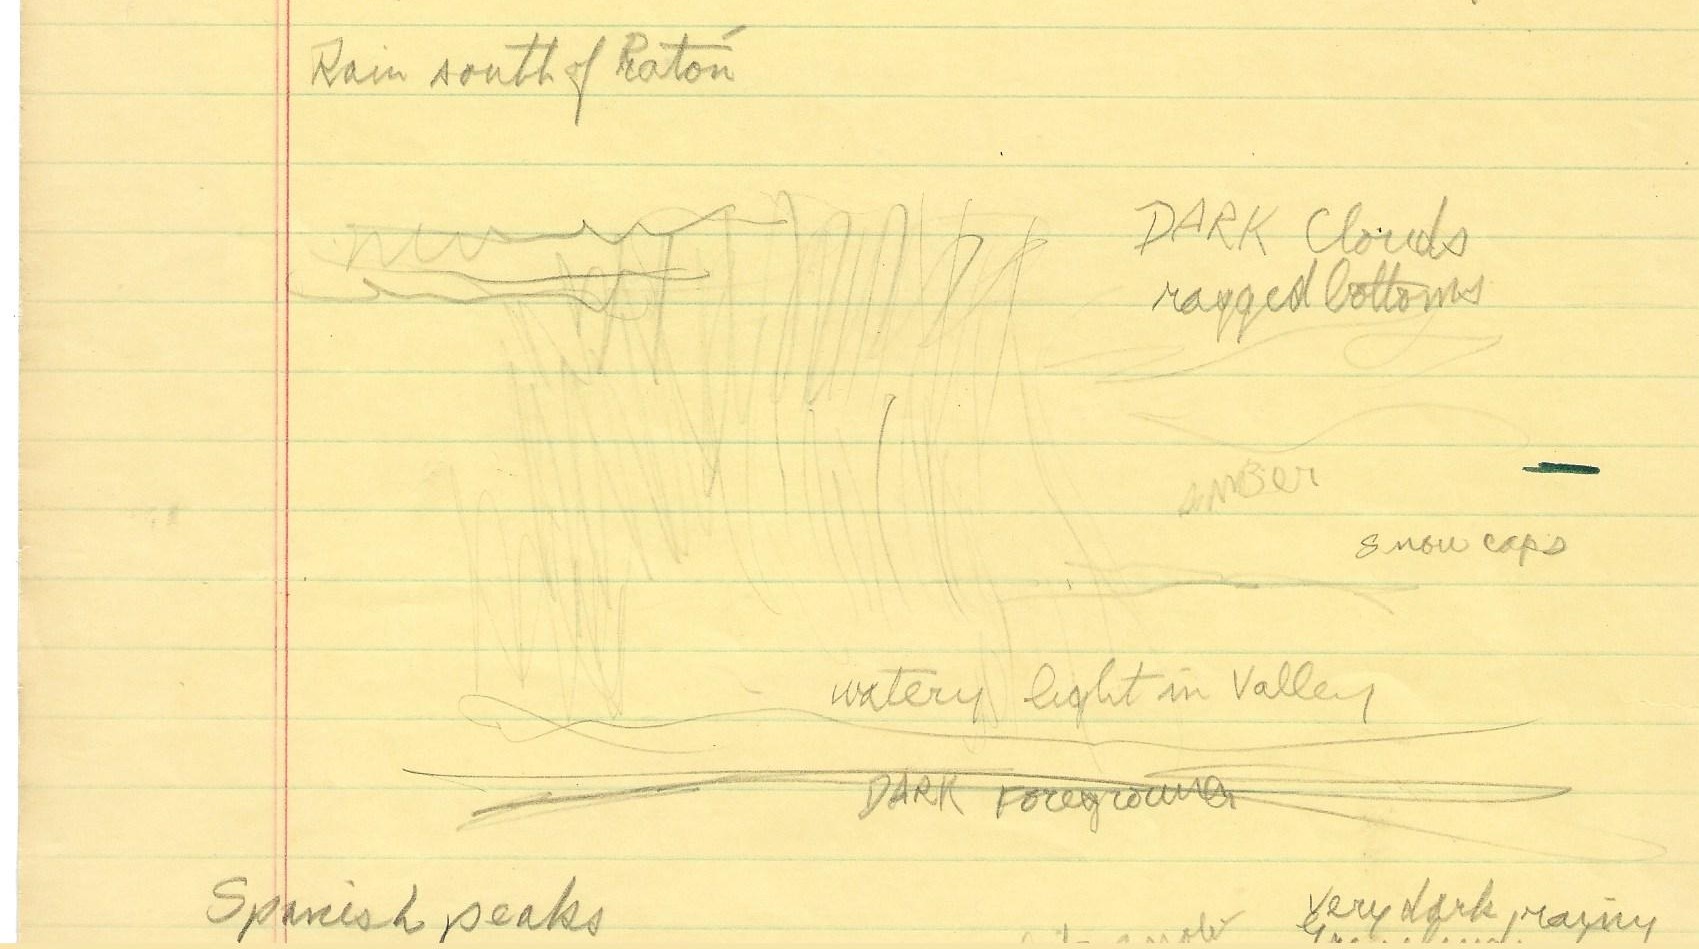 Rain south of Ratón
DARK Clouds
ragged bottoms
amber
snow caps
watery light in Valley
DARK Foreground
Spanish peaks
very dark, rainy